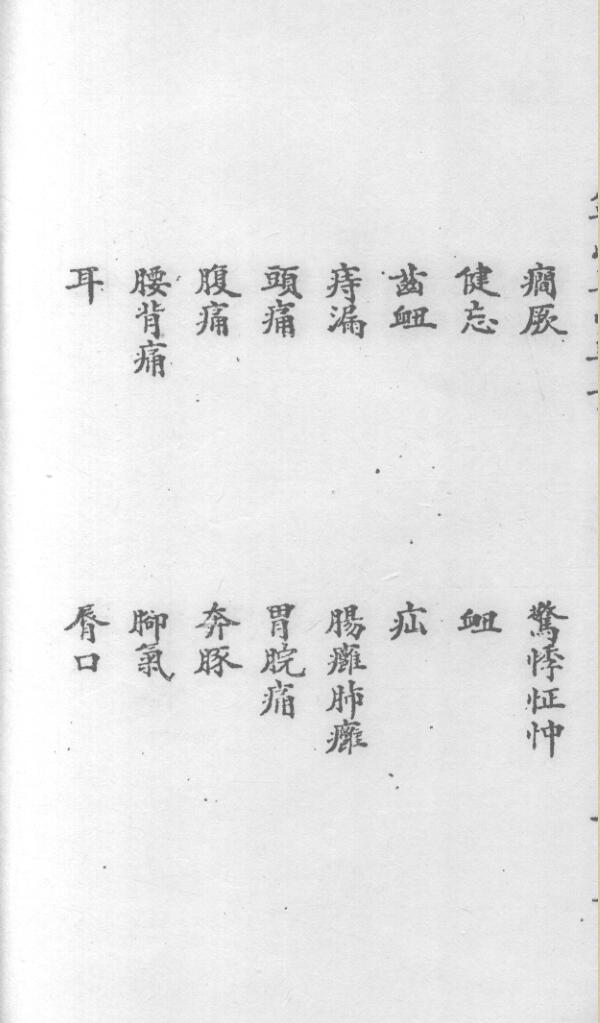 癇厥
驚悸怔忡
健忘
衄
齒衄
疝
痔漏
腸癰肺癰
頭痛
胃脘痛
腹痛
奔豚
腰背痛
脚氣
耳
脣口